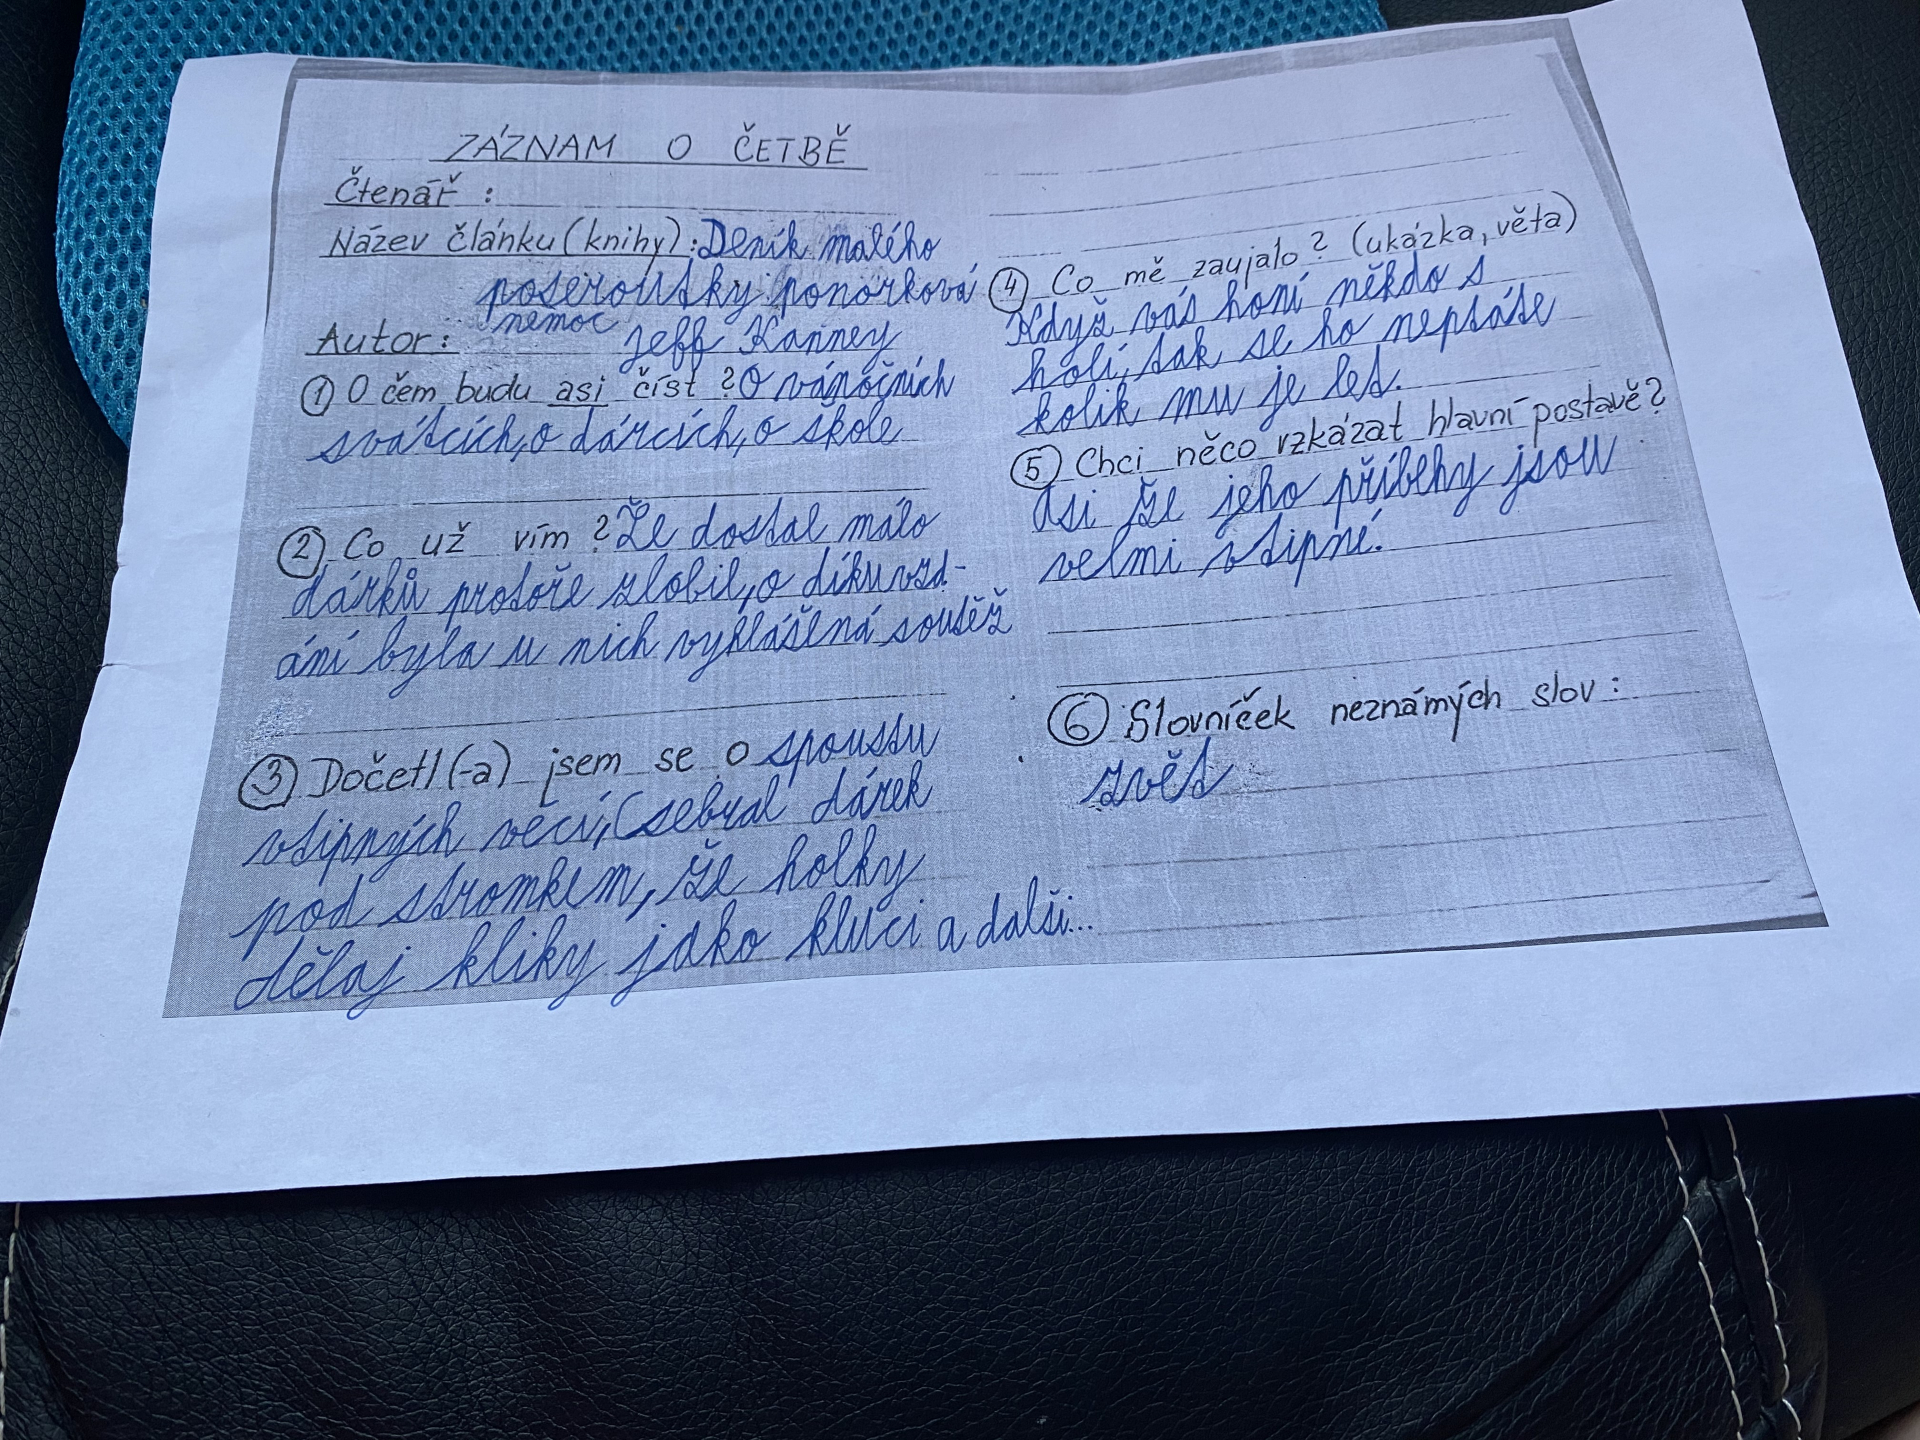 ZÁZNAM O ČETBĚ
Čtenář :
Název článku (knihy) : Deník malého
poseroutky ponorková
nemoc
Autor : jeff Kanney
① O čem budu asi číst ? O vánočních
svátcích, o dárcích, o škole
② Co už vím ? Že dostal málo
dárků protože zlobil, o díkuvzd-
ání byla u nich vyhlášená soutěž
③ Dočetl (-a) jsem se o spoustu
vtipných věcí, (sebral dárek
pod stromkem, že holky
dělaj kliky jako kluci a další...
④ Co mě zaujalo ? (ukázka, věta)
Když vás honí někdo s
holí, tak se ho neptáte
kolik mu je let.
⑤ Chci něco vzkázat hlavní postavě ?
Asi že jeho příběhy jsou
velmi vtipné.
⑥ Slovníček neznámých slov :
zvět